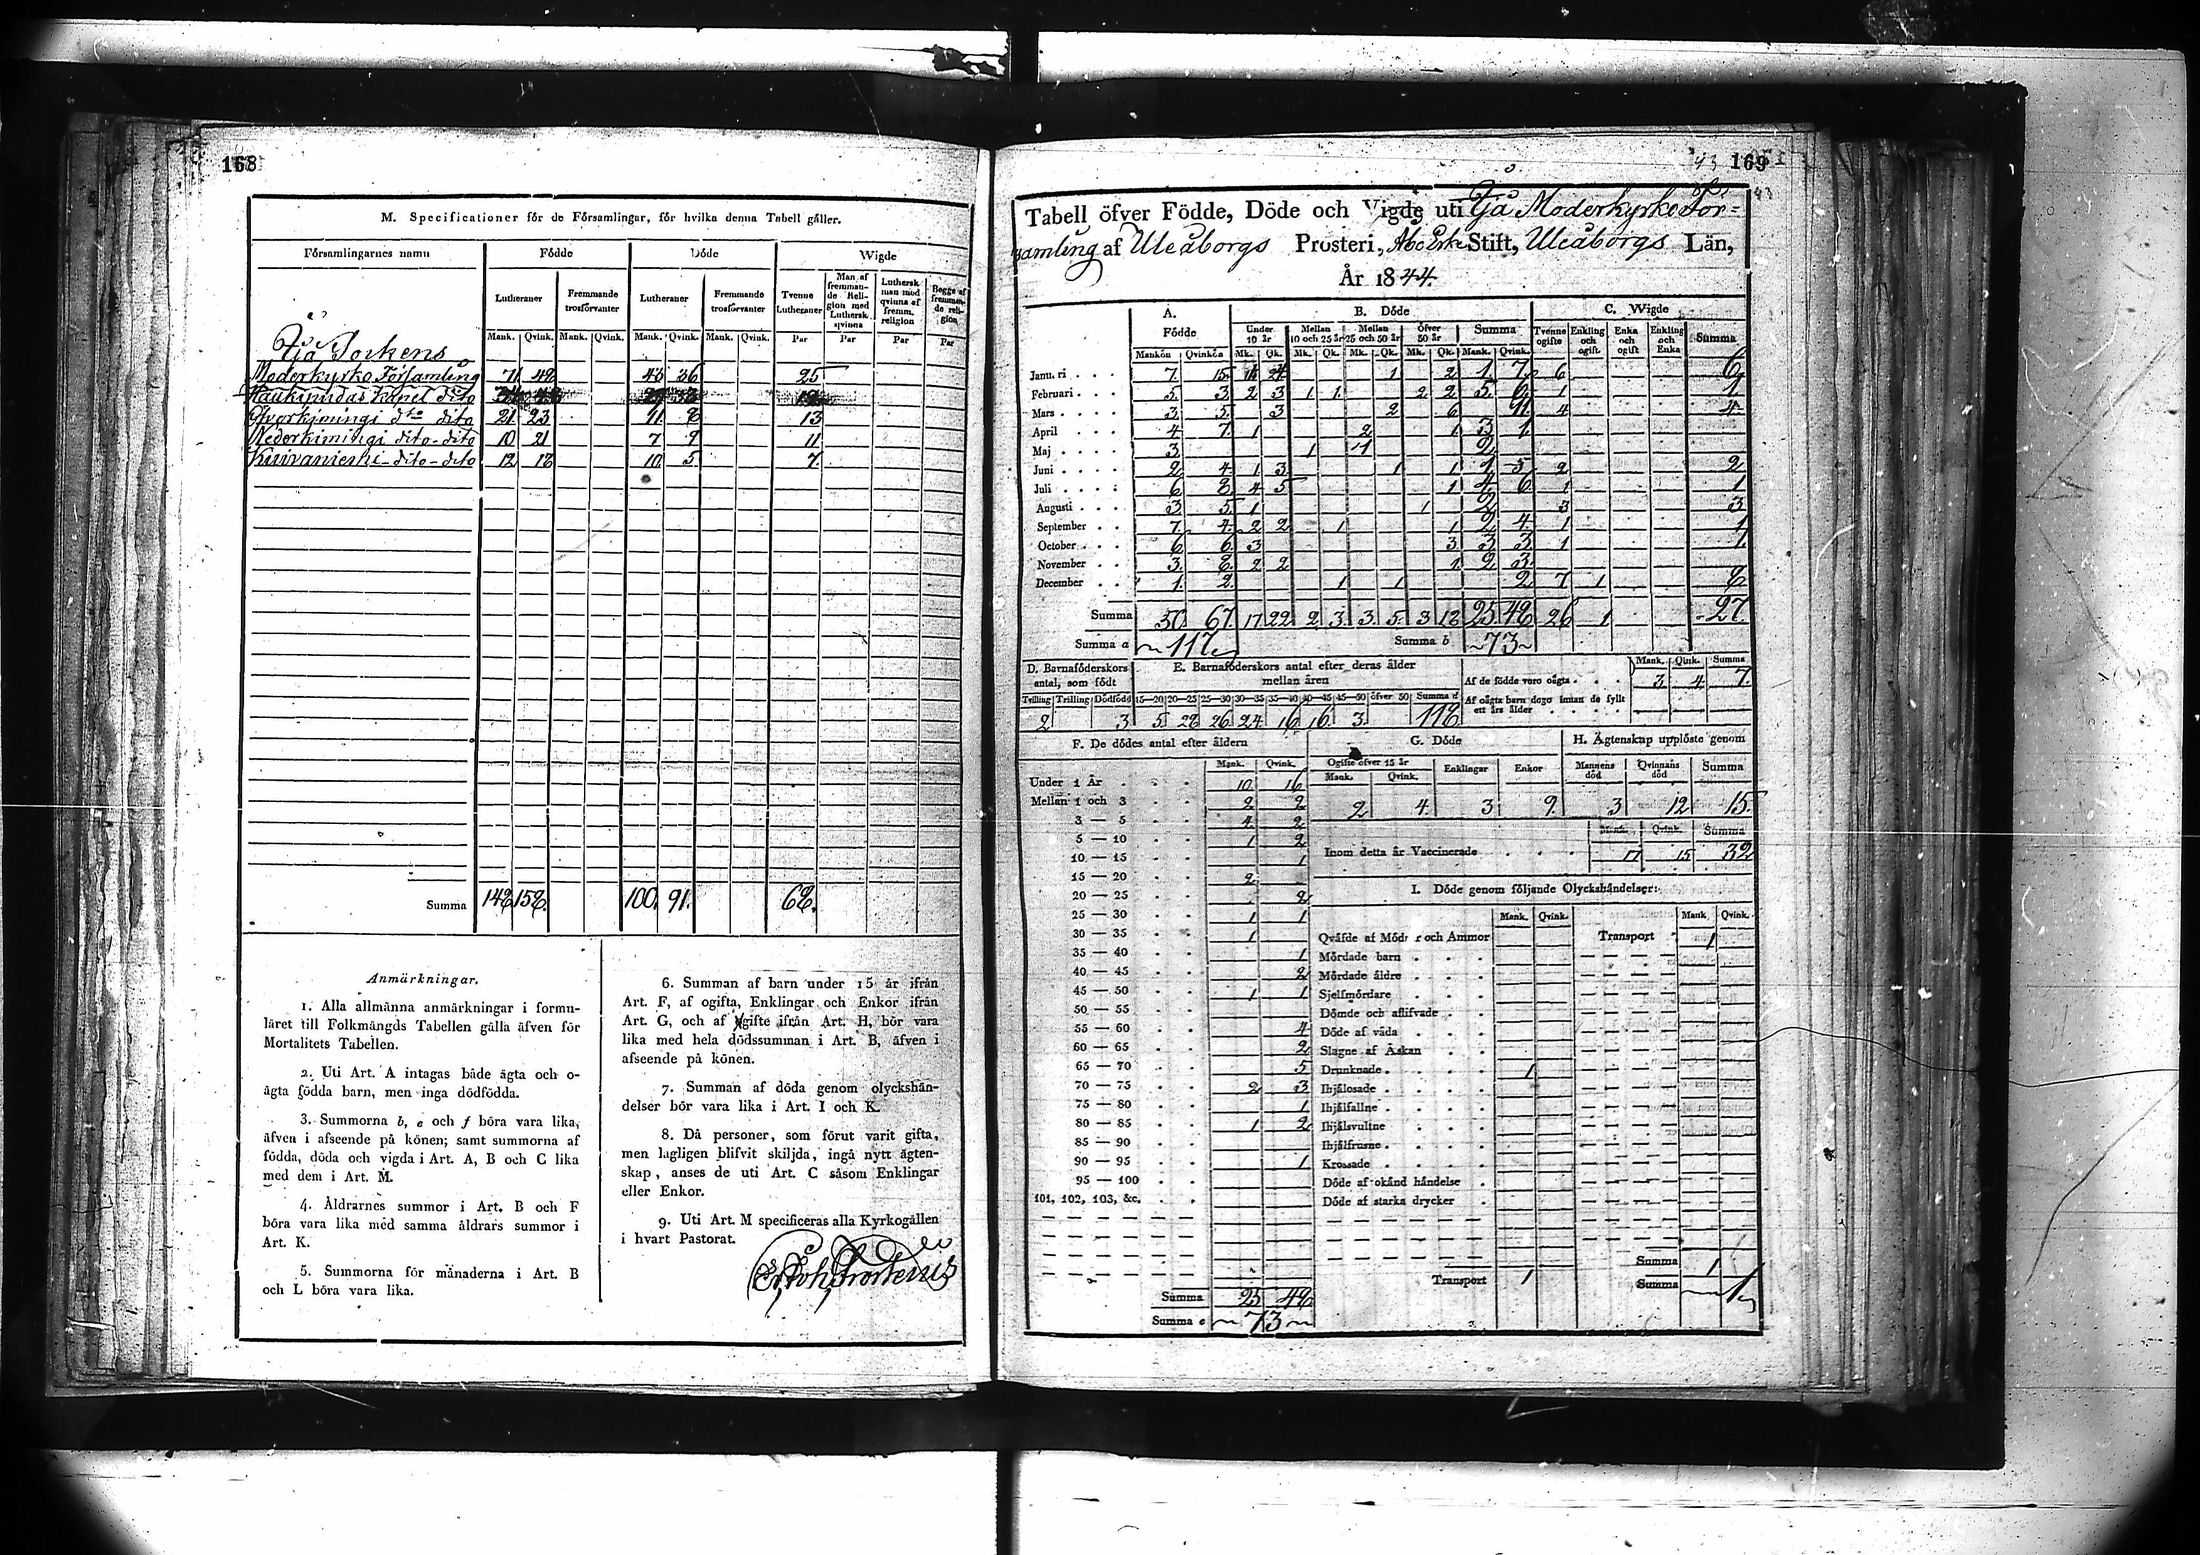 168
M. Specificationer för de Församlingar, för hvilka denna Tabell gäller.
Församlingarnes namn Födde Döde Wigde
Lutheraner Fremmande trosförvanter Lutheraner Fremmande trosförvanter Tvenne Lutheraner Man af fremmande Religion med Luthersk qvinna Luthersk man med qvinna af fremm. religion Begge af fremmande religion
Mank. Qvink. Mank. Qvink. Mank. Qvink. Mank. Qvink. Par Par Par Par
Ijå Sockens
Moderkyrko Församling 71 42 43 36 25
Öfverkimingi dto dito 21 23 11 8 13
Nederkimingi dito - dito 10 21 7 9 11
Kuivaniemi - dito - dito 12 18 10 5 7
Summa 148 158 100 91 68
Anmärkningar.
1. Alla allmänna anmärkningar i formu-
läret till Folkmängds Tabellen gälla äfven för
Mortalitets Tabellen.
2. Uti Art. A intagas både ägta och o-
ägta födda barn, men inga dödfödda.
3. Summorna b, e och f böra vara lika,
äfven i afseende på könen; samt summorna af
födda, döda och vigda i Art. A, B och C lika
med dem i Art. M.
4. Åldrarnes summor i Art. B och F
böra vara lika med samma åldrars summor i
Art. K.
5. Summorna för månaderna i Art. B
och L böra vara lika.
6. Summan af barn under 15 år ifrån
Art. F, af ogifta, Enklingar och Enkor ifrån
Art. G, och af gifte ifrån Art. H, bör vara
lika med hela dödssumman i Art. B, äfven i
afseende på könen.
7. Summan af döda genom olyckshän-
delser bör vara lika i Art. I och K.
8. Då personer, som förut varit gifta,
men lagligen blifvit skiljda, ingå nytt ägten-
skap, anses de uti Art. C såsom Enklingar
eller Enkor.
9. Uti Art. M specificeras alla Kyrkogällen
i hvart Pastorat.
43 169
Tabell öfver Födde, Döde och Vigde uti Ijå Moderkyrko För=
samling af Uleåborgs Prosteri, Åbo Erke Stift, Uleåborgs Län,
År 1844.
A. Födde B. Döde C. Wigde
Under 10 år Mellan 10 och 25 år Mellan 25 och 50 år Öfver 50 år Summa Tvenne ogifte Enkling och ogift Enka och ogift Enkling och Enka Summa
Mankön Qvinkön Mk. Qk. Mk. Qk. Mk. Qk. Mk. Qk. Mank. Qvink.
Januari 7 15 1 4 1 2 1 7 6 6
Februari 5 3 2 3 1 1 2 2 5 6 1 1
Mars 3 5 3 2 6 11 4 4
April 4 7 1 2 1 3 1
Maj 3 1 1 2
Juni 2 4 1 3 1 1 1 5 2 2
Juli 6 8 4 5 1 4 6 1 1
Augusti 3 5 1 1 2 3 3
September 7 4 2 2 1 1 2 4 1 1
October 6 6 3 3 3 3 1 1
November 3 8 2 2 1 2 3
December 1 2 1 1 2 7 1 8
Summa 50 67 17 22 2 3 3 5 3 18 25 48 26 1 27
Summa a 117 Summa b 73
D. Barnaföderskors antal, som födt E. Barnaföderskors antal efter deras ålder mellan åren Mank. Qvink. Summa
Af de födde voro oägta 3 4 7
Tvilling Trilling Dödfödd 15—20 20—25 25—30 30—35 35—40 40—45 45—50 öfver 50 Summa d
Af oägta barn dogo innan de fyllt ett års ålder
2 3 5 28 26 24 16 16 3 118
F. De dödes antal efter åldern G. Döde H. Ägtenskap upplöste genom
Mank. Qvink. Ogifte öfver 15 år Enklingar Enkor Mannens död Qvinnans död Summa
Mank. Qvink.
Under 1 År 10 16
Mellan 1 och 3 2 2 2 4 3 9 3 12 15
3 — 5 4 2
5 — 10 1 2 Mank. Qvink. Summa
10 — 15 1 Inom detta år Vaccinerade 17 15 32
15 — 20 2
I. Döde genom följande Olyckshändelser:
20 — 25 2
25 — 30 1 1 Mank. Qvink. Mank Qvink.
30 — 35 1 Qväfde af Mödrar och Ammor Transport 1
35 — 40 1 Mördade barn
40 — 45 2 Mördade äldre
45 — 50 1 1 Sjelfmördare
50 — 55 Dömde och aflifvade
55 — 60 4 Döde af våda
60 — 65 2 Slagne af Åskan
65 — 70 5 Drunknade 1
70 — 75 2 3 Ihjälosade
75 — 80 1 Ihjälfallne
80 — 85 1 2 Ihjälsvultne
85 — 90 Ihjälfrusne
90 — 95 1 Krossade
95 — 100 Döde af okänd händelse
101, 102, 103, &c. Döde af starka drycker
Summa 1
Transport 1 Summa 1
Summa 25 48
Summa e 73